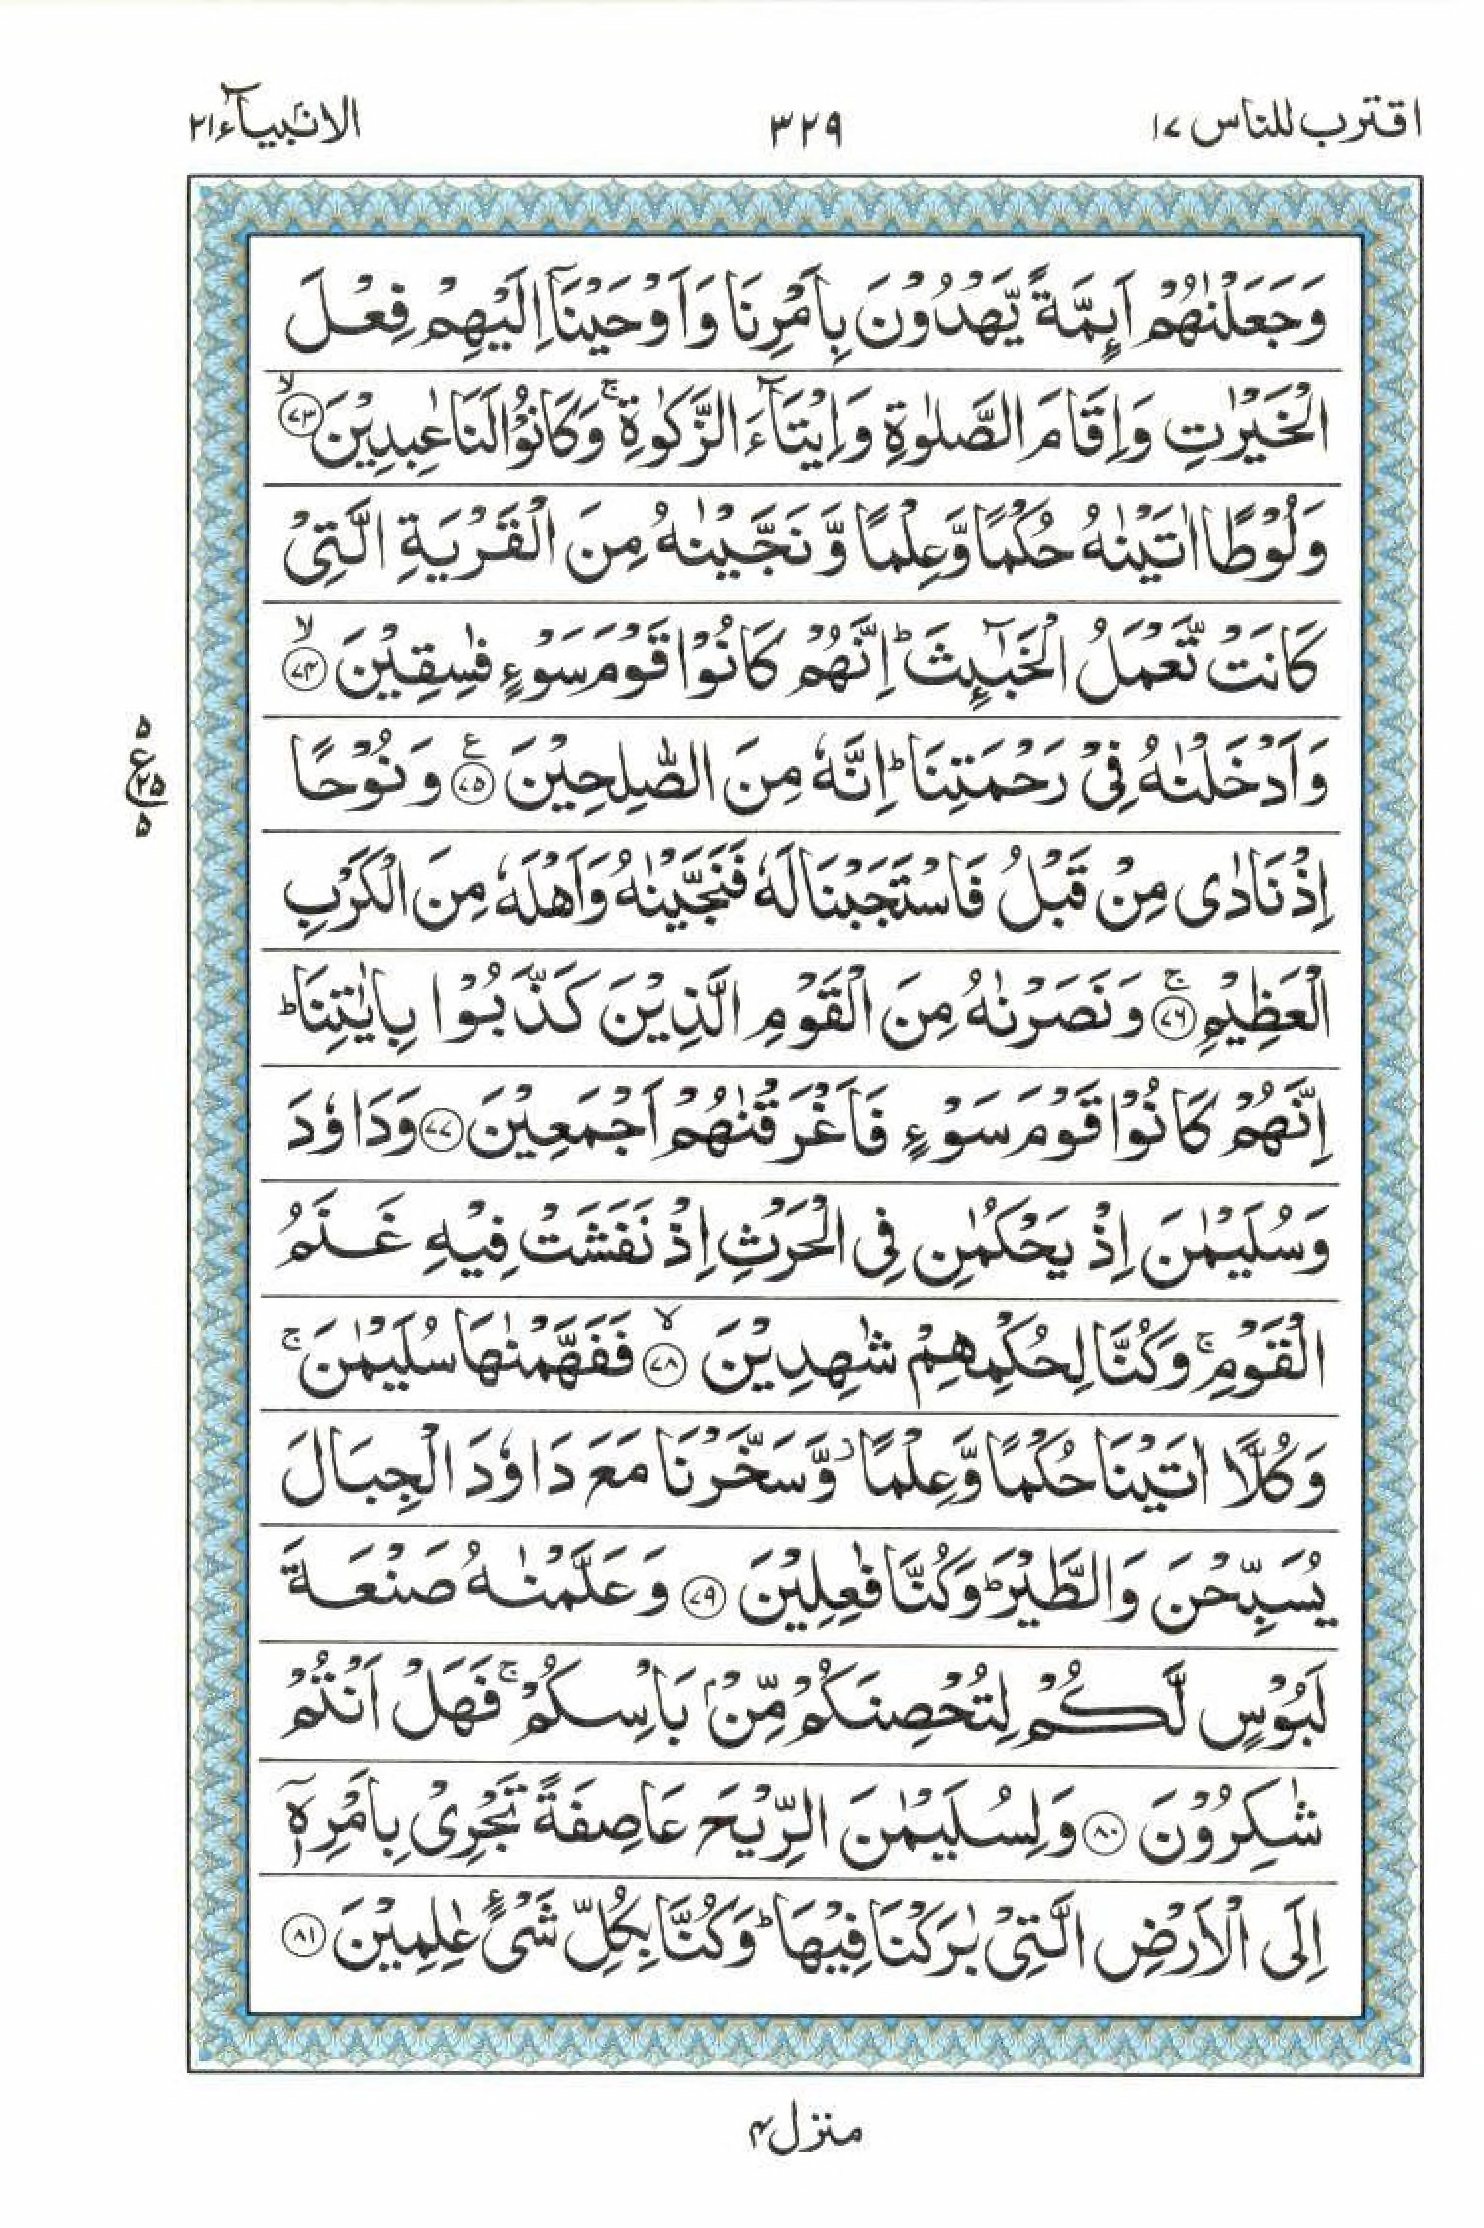 اقترب للناس ١٧
٣٢٩
الانبیآء ٢١
وَجَعَلْنٰهُمْ اَىِٕمَّةً یَّهْدُوْنَ بِاَمْرِنَا وَاَوْحَیْنَاۤ اِلَیْهِمْ فِعْلَ
الْخَیْرٰتِ وَاِقَامَ الصَّلٰوةِ وَاِیْتَآءَ الزَّكٰوةِ ۚ وَكَانُوْا لَنَا عٰبِدِیْنَ ۙ﴿۷۳﴾
وَلُوْطًا اٰتَیْنٰهُ حُكْمًا وَّعِلْمًا وَّنَجَّیْنٰهُ مِنَ الْقَرْیَةِ الَّتِیْ
كَانَتْ تَّعْمَلُ الْخَبٰٓىِٕثَ ؕ اِنَّهُمْ كَانُوْا قَوْمَ سَوْءٍ فٰسِقِیْنَ ۙ﴿۷۴﴾
وَاَدْخَلْنٰهُ فِیْ رَحْمَتِنَا ؕ اِنَّهٗ مِنَ الصّٰلِحِیْنَ ﴿۷۵﴾ع وَنُوْحًا
٥
ع
٧٥
٥
اِذْ نَادٰی مِنْ قَبْلُ فَاسْتَجَبْنَا لَهٗ فَنَجَّیْنٰهُ وَاَهْلَهٗ مِنَ الْكَرْبِ
الْعَظِیْمِ ۚ﴿۷۶﴾ وَنَصَرْنٰهُ مِنَ الْقَوْمِ الَّذِیْنَ كَذَّبُوْا بِاٰیٰتِنَا ؕ
اِنَّهُمْ كَانُوْا قَوْمَ سَوْءٍ فَاَغْرَقْنٰهُمْ اَجْمَعِیْنَ ﴿۷۷﴾ وَدَاوٗدَ
وَسُلَیْمٰنَ اِذْ یَحْكُمٰنِ فِی الْحَرْثِ اِذْ نَفَشَتْ فِیْهِ غَنَمُ
الْقَوْمِ ۚ وَكُنَّا لِحُكْمِهِمْ شٰهِدِیْنَ ۙ﴿۷۸﴾ فَفَهَّمْنٰهَا سُلَیْمٰنَ ۚ
وَكُلًّا اٰتَیْنَا حُكْمًا وَّعِلْمًا ؗ وَّسَخَّرْنَا مَعَ دَاوٗدَ الْجِبَالَ
یُسَبِّحْنَ وَالطَّیْرَ ؕ وَكُنَّا فٰعِلِیْنَ ﴿۷۹﴾ وَعَلَّمْنٰهُ صَنْعَةَ
لَبُوْسٍ لَّكُمْ لِتُحْصِنَكُمْ مِّنْۢ بَاْسِكُمْ ۚ فَهَلْ اَنْتُمْ
شٰكِرُوْنَ ﴿۸۰﴾ وَلِسُلَیْمٰنَ الرِّیْحَ عَاصِفَةً تَجْرِیْ بِاَمْرِهٖۤ
اِلَی الْاَرْضِ الَّتِیْ بٰرَكْنَا فِیْهَا ؕ وَكُنَّا بِكُلِّ شَیْءٍ عٰلِمِیْنَ ﴿۸۱﴾
منزل ۴